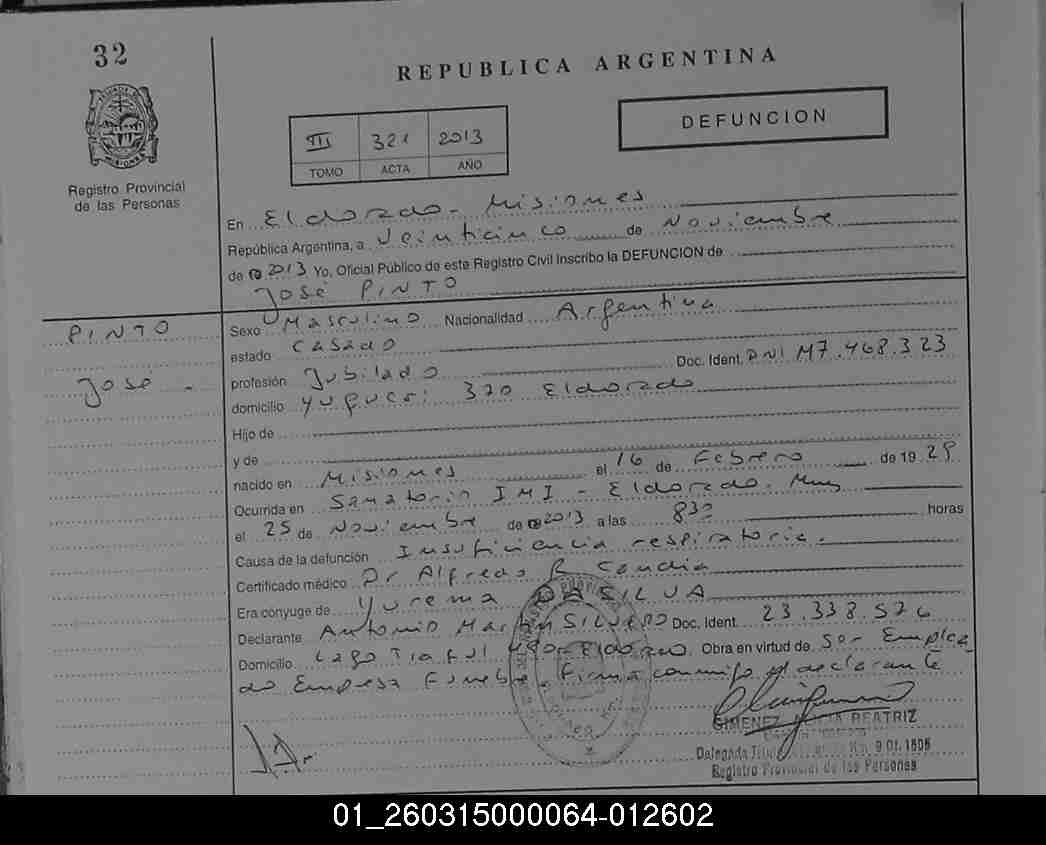 32
REPUBLICA ARGENTINA
DEFUNCION
III 321 2013
TOMO ACTA AÑO
Registro Provincial
de las Personas
En Eldorado - Misiones
República Argentina, a Veinticinco de Noviembre
de 2013 Yo, Oficial Público de este Registro Civil inscribo la DEFUNCION de
José PINTO
PINTO
José -
Sexo Masculino Nacionalidad Argentina
estado Casado
profesión Jubilado Doc. Ident. DNI M7.468.323
domicilio 370 Eldorado
Hijo de
y de
nacido en Misiones el 16 de Febrero de 1929
Ocurrida en Sanatorio IMI - Eldorado.
el 25 de Noviembre de 2013 a las 8 30 horas
Causa de la defunción Insuficiencia respiratoria.
Certificado médico Dr Alfredo R Candia
Era cónyuge de Yurema DA SILVA
Declarante Antonio Martin SILVERO Doc. Ident. 23.338.576
Domicilio Lago Eldorado. Obra en virtud de Ser Emplea
do Empresa Funebre. Firma conmigo el declarante
GIMENEZ ALICIA BEATRIZ
Delegada Titular
Registro Provincial de las Personas
01_260315000064-012602